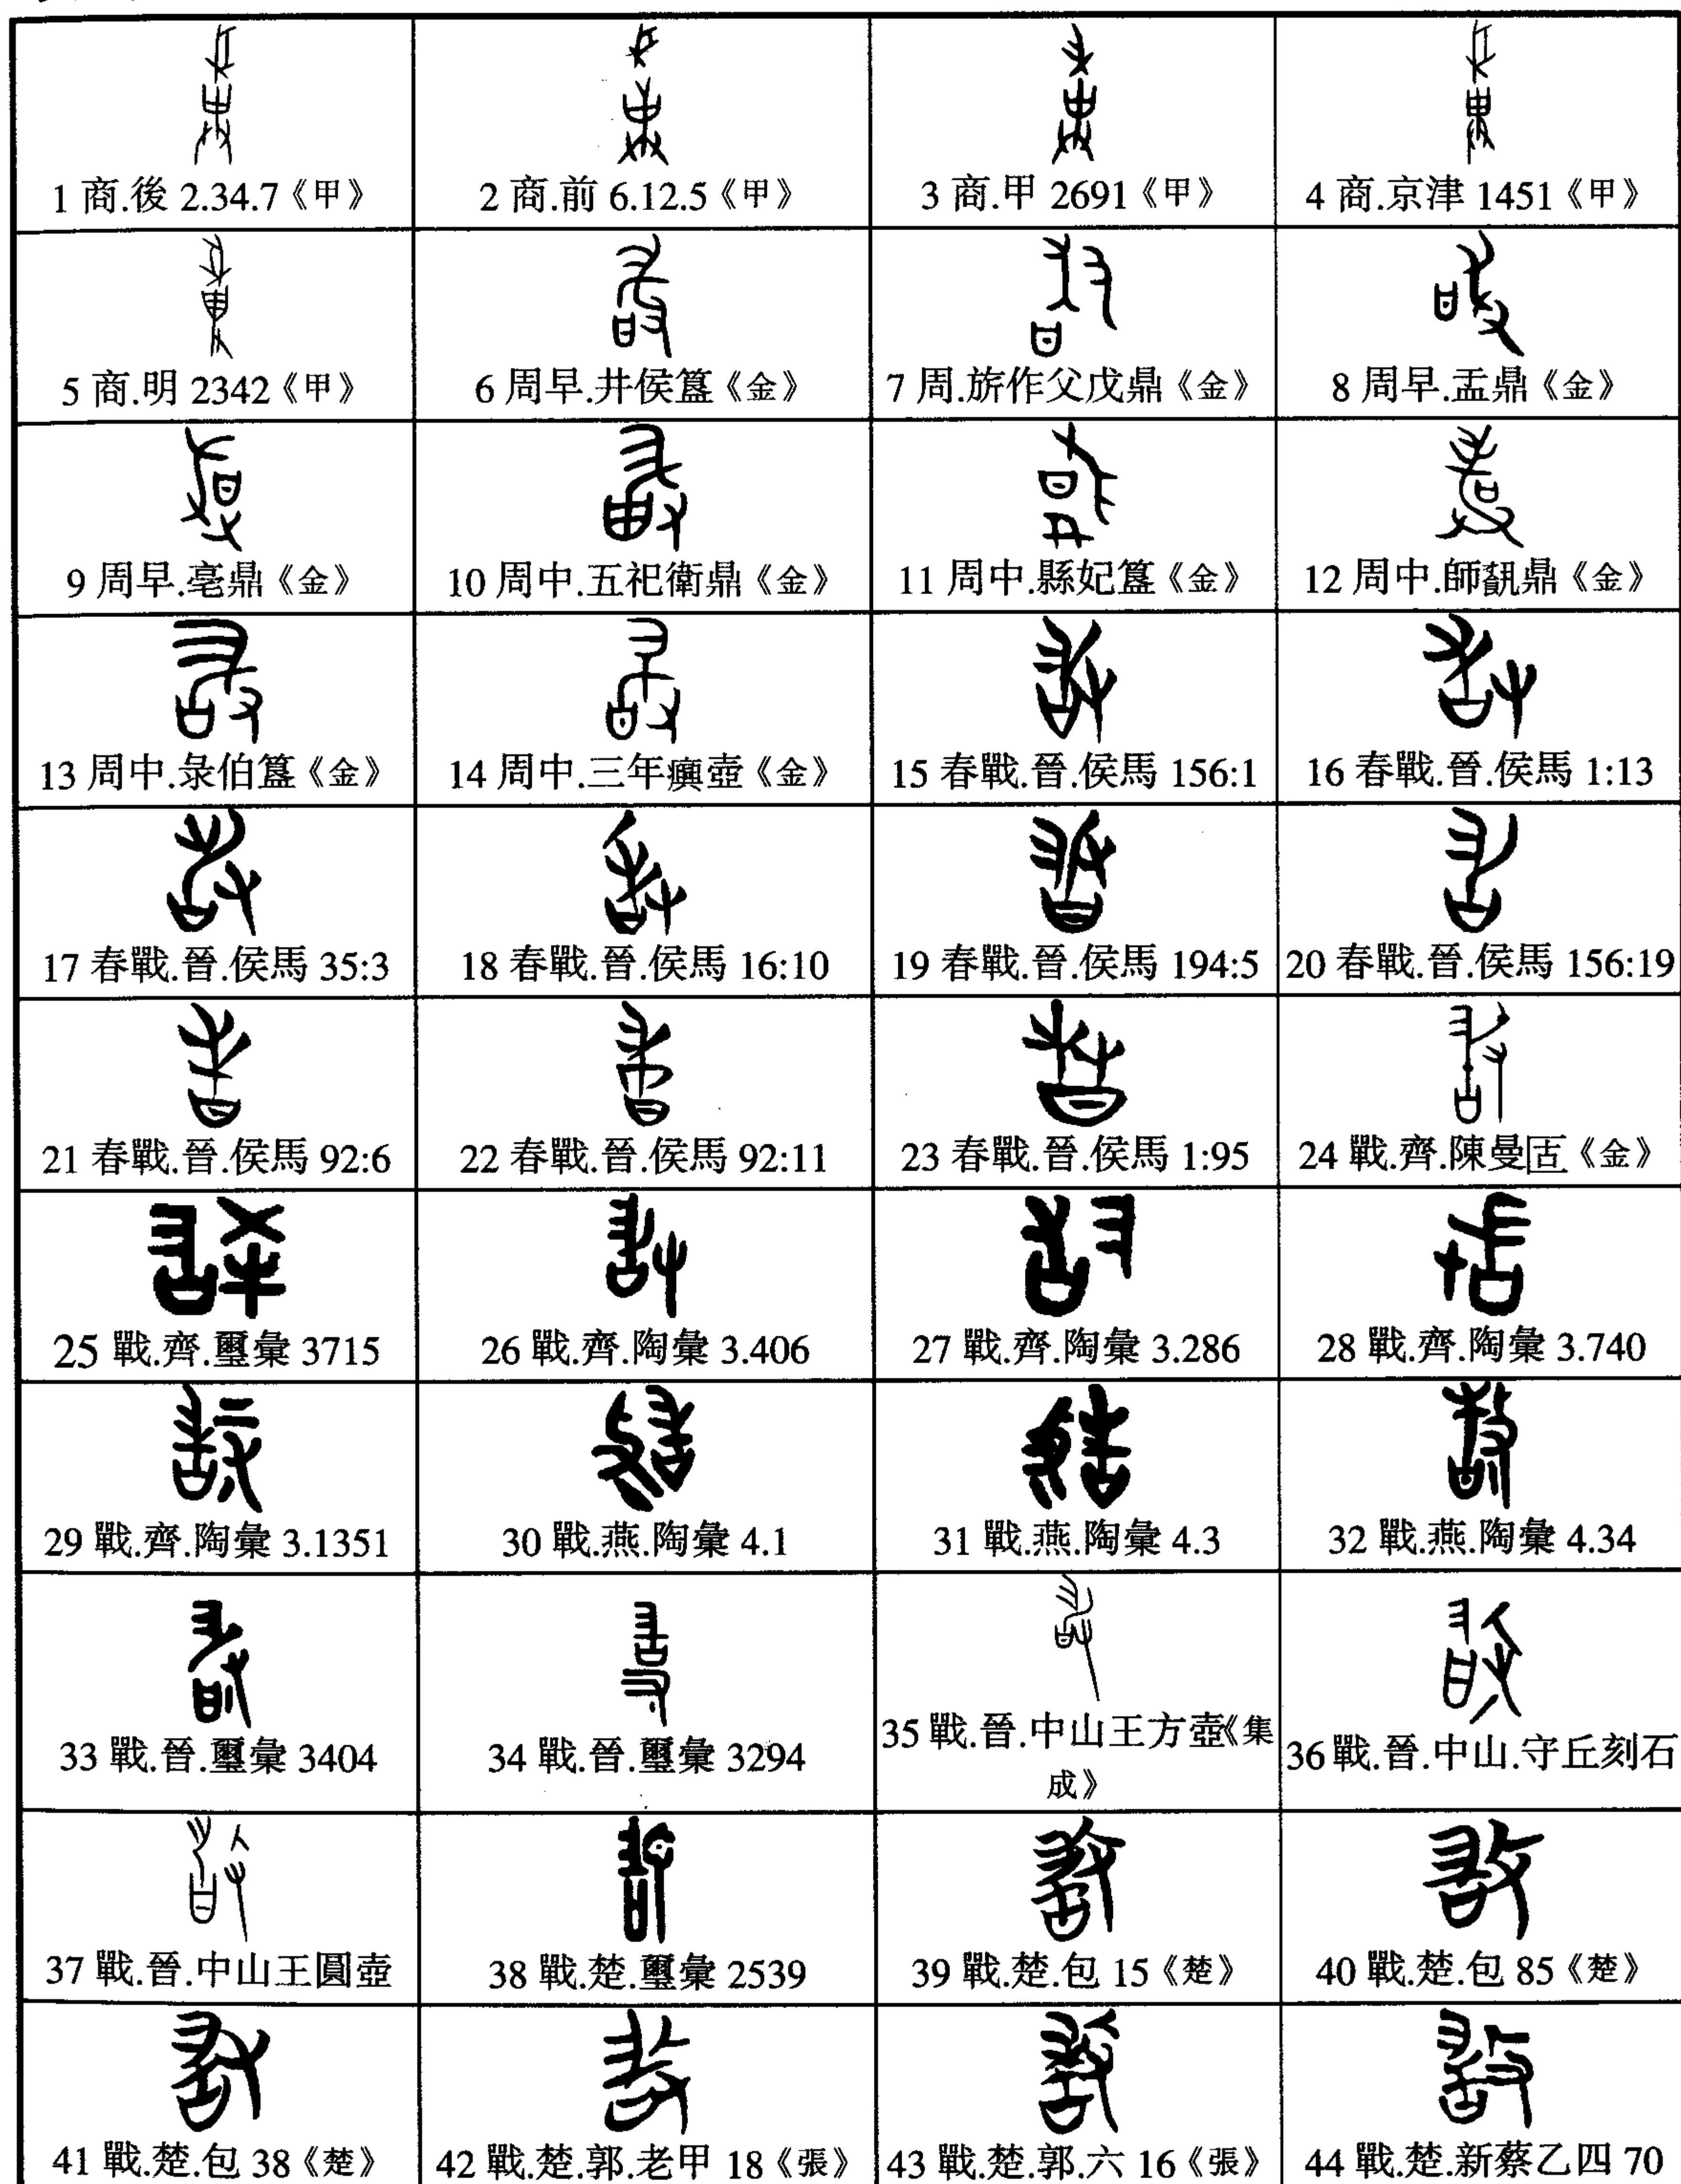 1 商.後 2.34.7《甲》
2 商.前 6.12.5《甲》
3 商.甲 2691《甲》
4 商.京津 1451《甲》
5 商.明 2342《甲》
6 周早.井侯簋《金》
7 周.旂作父戊鼎《金》
8 周早.盂鼎《金》
9 周早.毫鼎《金》
10 周中.五祀衛鼎《金》
11 周中.縣妃簋《金》
12 周中.師𩛥鼎《金》
13 周中.彔伯簋《金》
14 周中.三年𤼈壺《金》
15 春戰.晉.侯馬 156:1
16 春戰.晉.侯馬 1:13
17 春戰.晉.侯馬 35:3
18 春戰.晉.侯馬 16:10
19 春戰.晉.侯馬 194:5
20 春戰.晉.侯馬 156:19
21 春戰.晉.侯馬 92:6
22 春戰.晉.侯馬 92:11
23 春戰.晉.侯馬 1:95
24 戰.齊.陳曼《金》
25 戰.齊.璽彙 3715
26 戰.齊.陶彙 3.406
27 戰.齊.陶彙 3.286
28 戰.齊.陶彙 3.740
29 戰.齊.陶彙 3.1351
30 戰.燕.陶彙 4.1
31 戰.燕.陶彙 4.3
32 戰.燕.陶彙 4.34
33 戰.晉.璽彙 3404
34 戰.晉.璽彙 3294
35 戰.晉.中山王方壺《集
成》
36 戰.晉.中山.守丘刻石
37 戰.晉.中山王圓壺
38 戰.楚.璽彙 2539
39 戰.楚.包 15《楚》
40 戰.楚.包 85《楚》
41 戰.楚.包 38《楚》
42 戰.楚.郭.老甲 18《張》
43 戰.楚.郭.六 16《張》
44 戰.楚.新蔡乙四 70